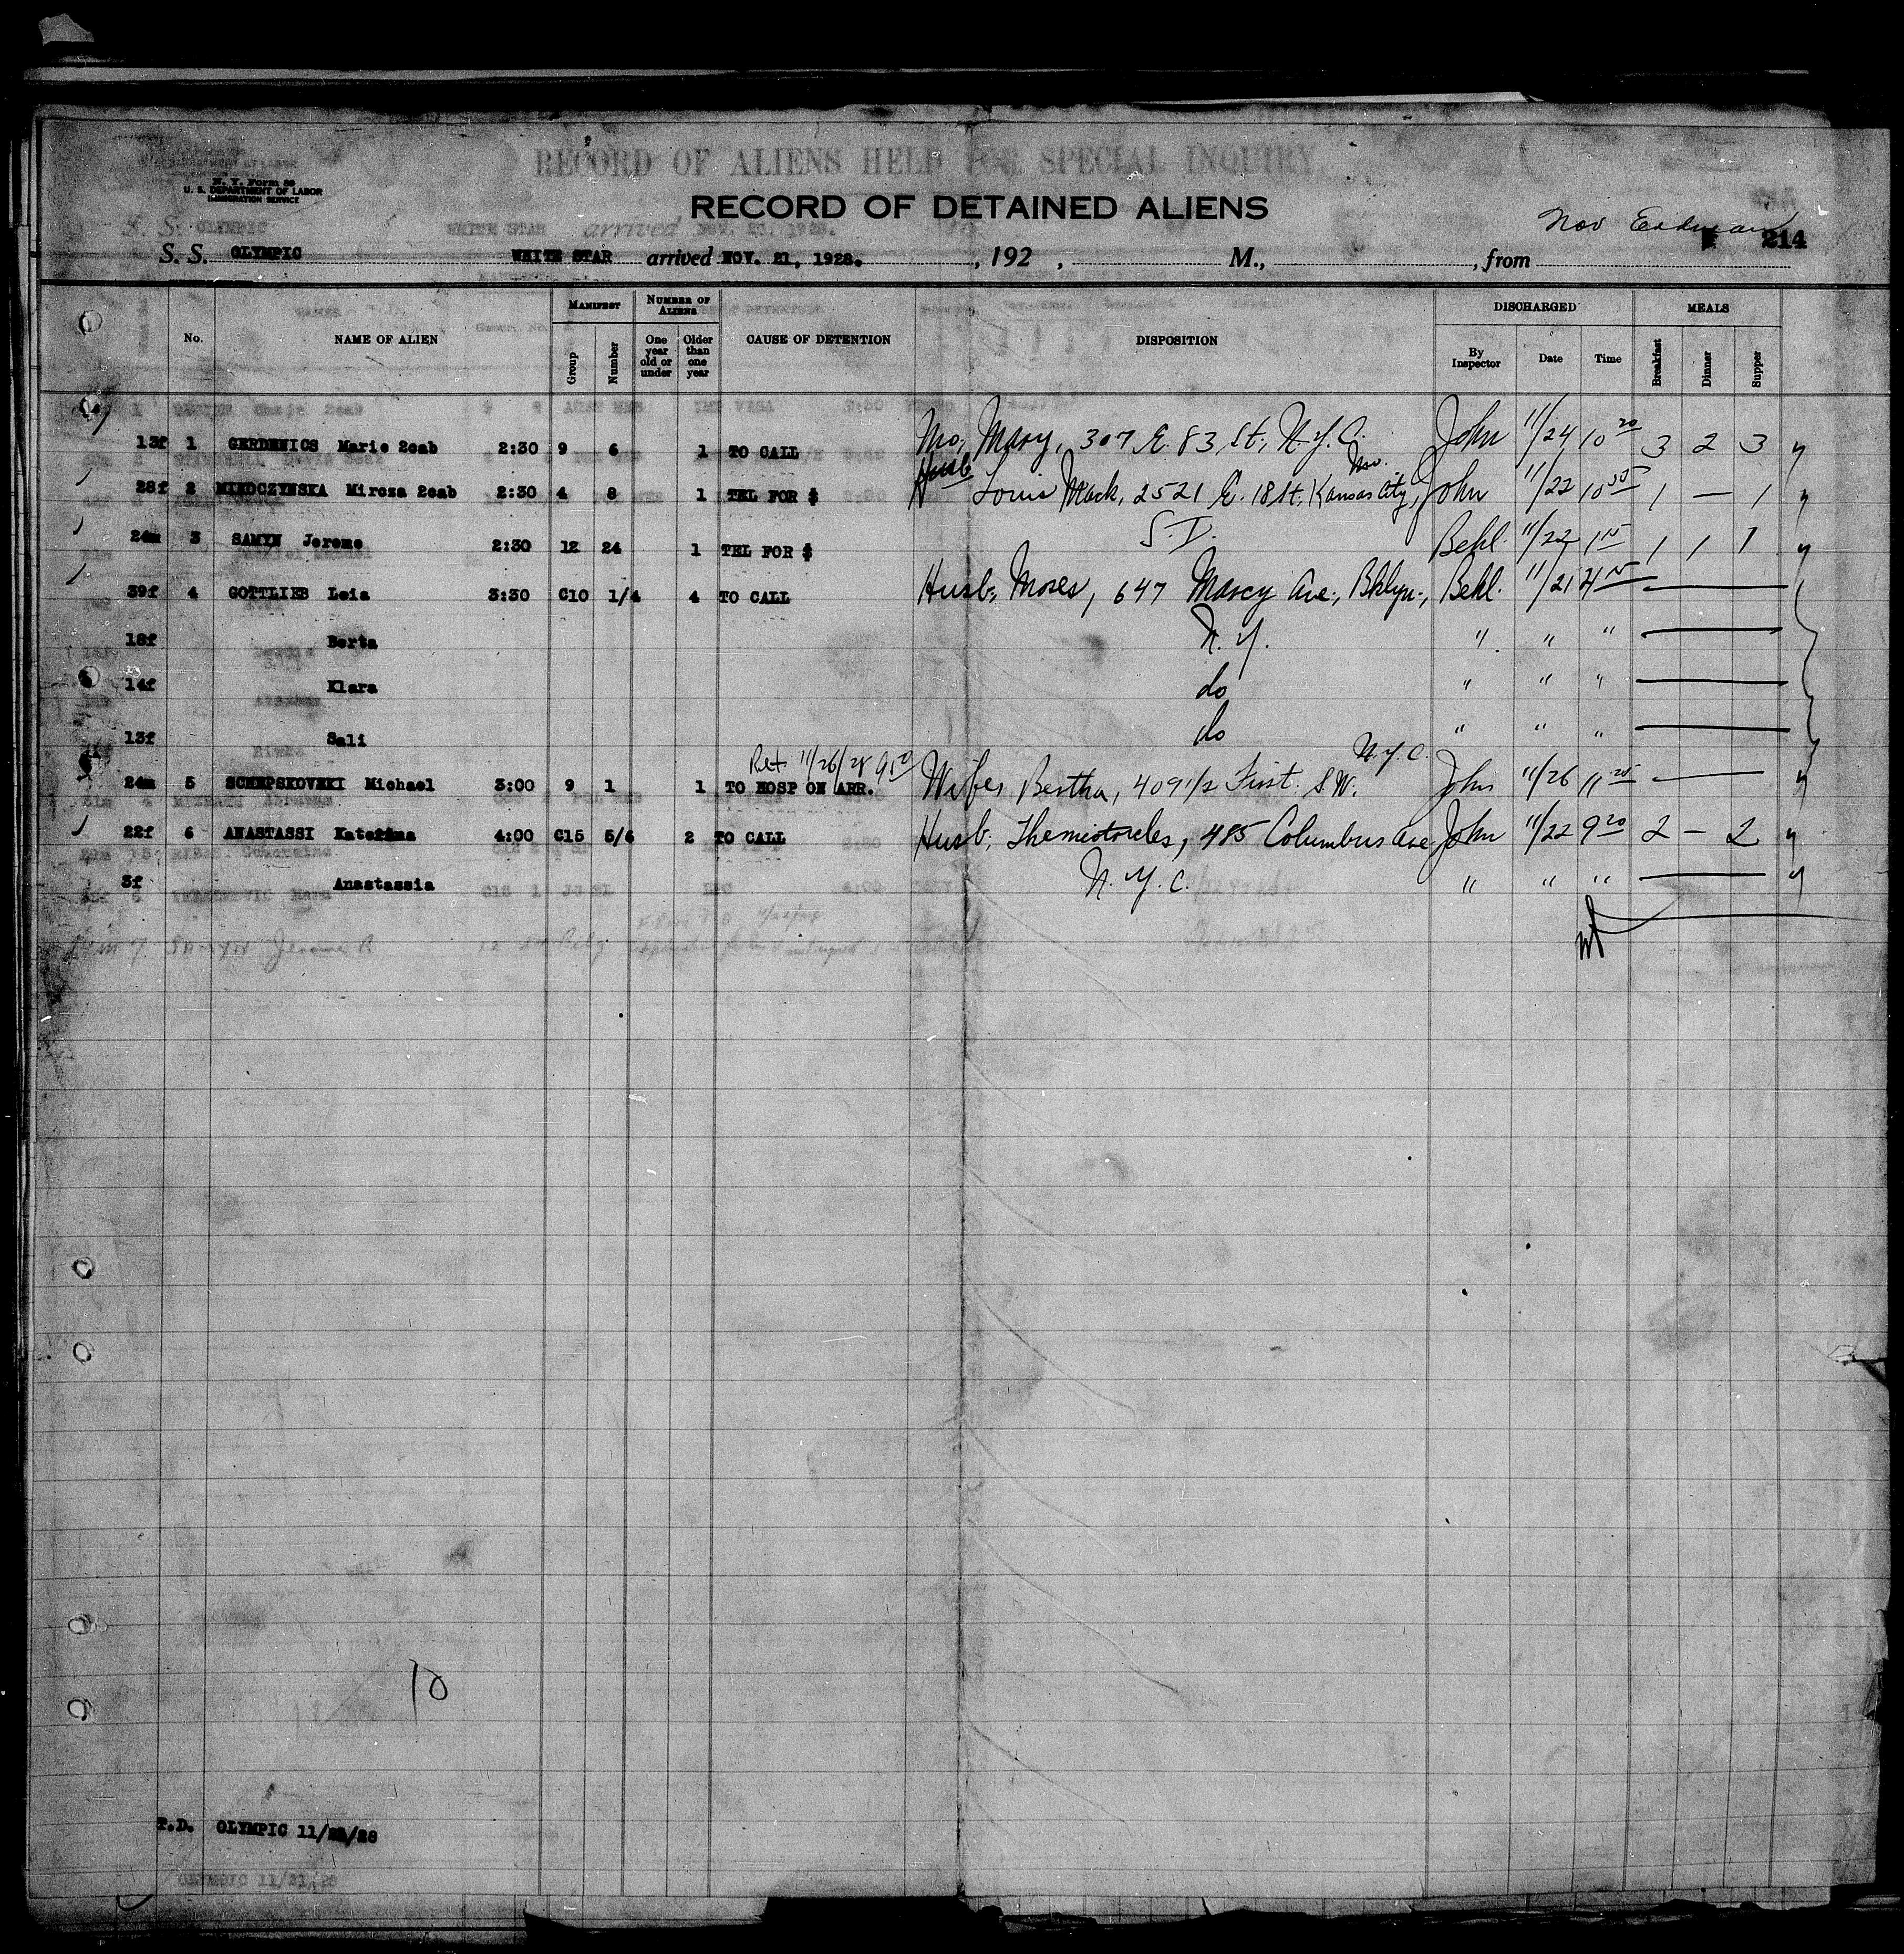 RECORD OF ALIENS HELD FOR SPECIAL INQUIRY
N. Y. Form 86
U. S. DEPARTMENT OF LABOR
IMMIGRATION SERVICE
RECORD OF DETAINED ALIENS
Nov
214
S. S. OLYMPIC WHITE STAR arrived NOV. 21, 1928. , 192 , M., , from
MANIFEST NUMBER OF ALIENS DISCHARGED MEALS
No. NAME OF ALIEN Group Number One year old or under Older than one year CAUSE OF DETENTION DISPOSITION By Inspector Date Time Breakfast Dinner Supper
13f 1 GERDENICS Marie 2cab 2:30 9 6 1 TO CALL Mo, Mary, 307 E. 83 St., N.Y.C. John 11/24 10 20 3 2 3
28f 2 MIKOCZYNSKA Mircza 2cab 2:30 4 8 1 TEL FOR $ Husb Louis Mack, 2521 E. 18 St., Kansas City, Mo. John 11/22 10 30 1 — 1
24m 3 SAMYN Jerome 2:30 12 24 1 TEL FOR $ S.I. Behl. 11/22 1 15 1 1 1
39f 4 GOTTLIEB Leia 3:30 C10 1/4 4 TO CALL Husb, Moses, 647 Marcy Ave., Bklyn., Behl. 11/21 4 15 —
18f Berta N.Y. " " " —
14f Klara do " " " —
13f Sali do " " " —
Ret 11/26/28 N.Y.C.
24m 5 SCHEPSKOVSKI Michael 3:00 9 1 1 TO HOSP ON ARR. Wife, Bertha, 409 1/2 First John 11/26 11 25 —
22f 6 ANASTASSI Katerina 4:00 C15 5/6 2 TO CALL Husb, Themistocles, 485 Columbus Ave John 11/22 9 20 2 — 2
3f Anastassia N.Y.C. " " " —
10
T.D. OLYMPIC 11/21/28
OLYMPIC 11/21/28